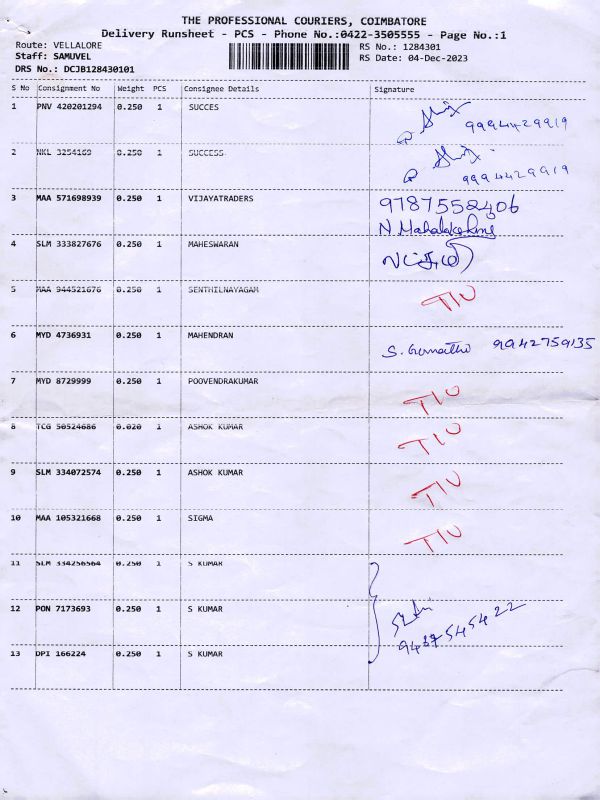 THE PROFESSIONAL COURIERS, COIMBATORE
Delivery Runsheet - PCS - Phone No.:0422-3505555 - Page No.:1
Route: VELLALORE RS No.: 1284301
Staff: SAMUVEL RS Date: 04-Dec-2023
DRS No.: DCJB128430101
S No Consignment No Weight PCS Consignee Details Signature
1 PNV 420201294 0.250 1 SUCCES 9994429919
2 NKL 3254169 0.250 1 SUCCESS 9994429919
3 MAA 571698939 0.250 1 VIJAYATRADERS 9787552406
N Mahalakshmi
4 SLM 333827676 0.250 1 MAHESWARAN
5 MAA 944521676 0.250 1 SENTHILNAYAGAM TIU
6 MYD 4736931 0.250 1 MAHENDRAN S. Gomathi 9942759135
7 MYD 8729999 0.250 1 POOVENDRAKUMAR TIU
8 TCG 50524686 0.020 1 ASHOK KUMAR TIU
9 SLM 334072574 0.250 1 ASHOK KUMAR TIU
10 MAA 105321668 0.250 1 SIGMA TIU
11 SLM 334256564 0.250 1 S KUMAR
12 PON 7173693 0.250 1 S KUMAR
13 DPI 166224 0.250 1 S KUMAR